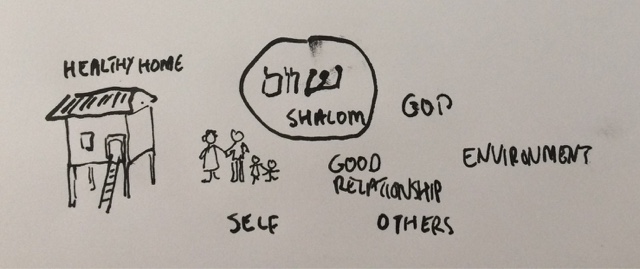 HEALTHY HOME
SHALOM
GOD
GOOD
RELATIONSHIP
ENVIRONMENT
SELF
OTHERS